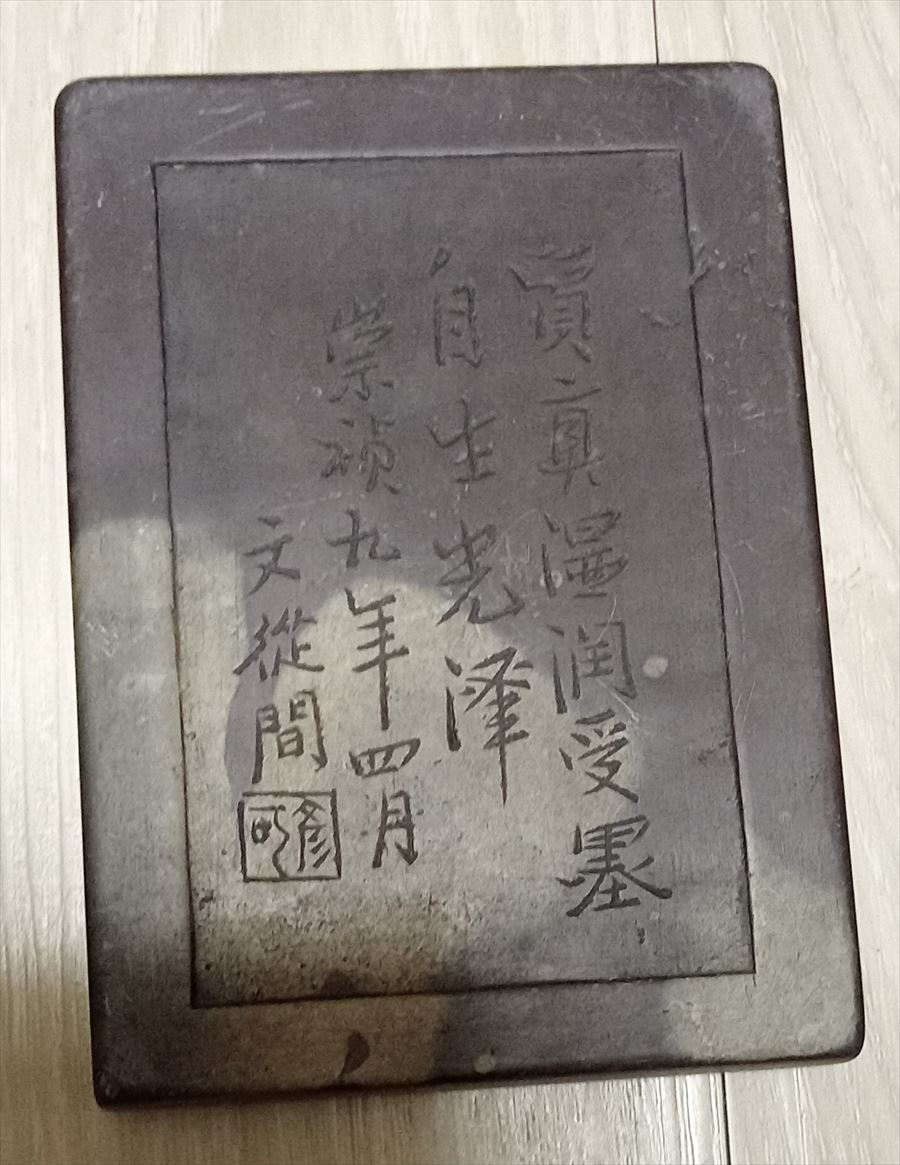 質真溫润受墨
自生光澤
崇禎九年四月
文從間
彥可